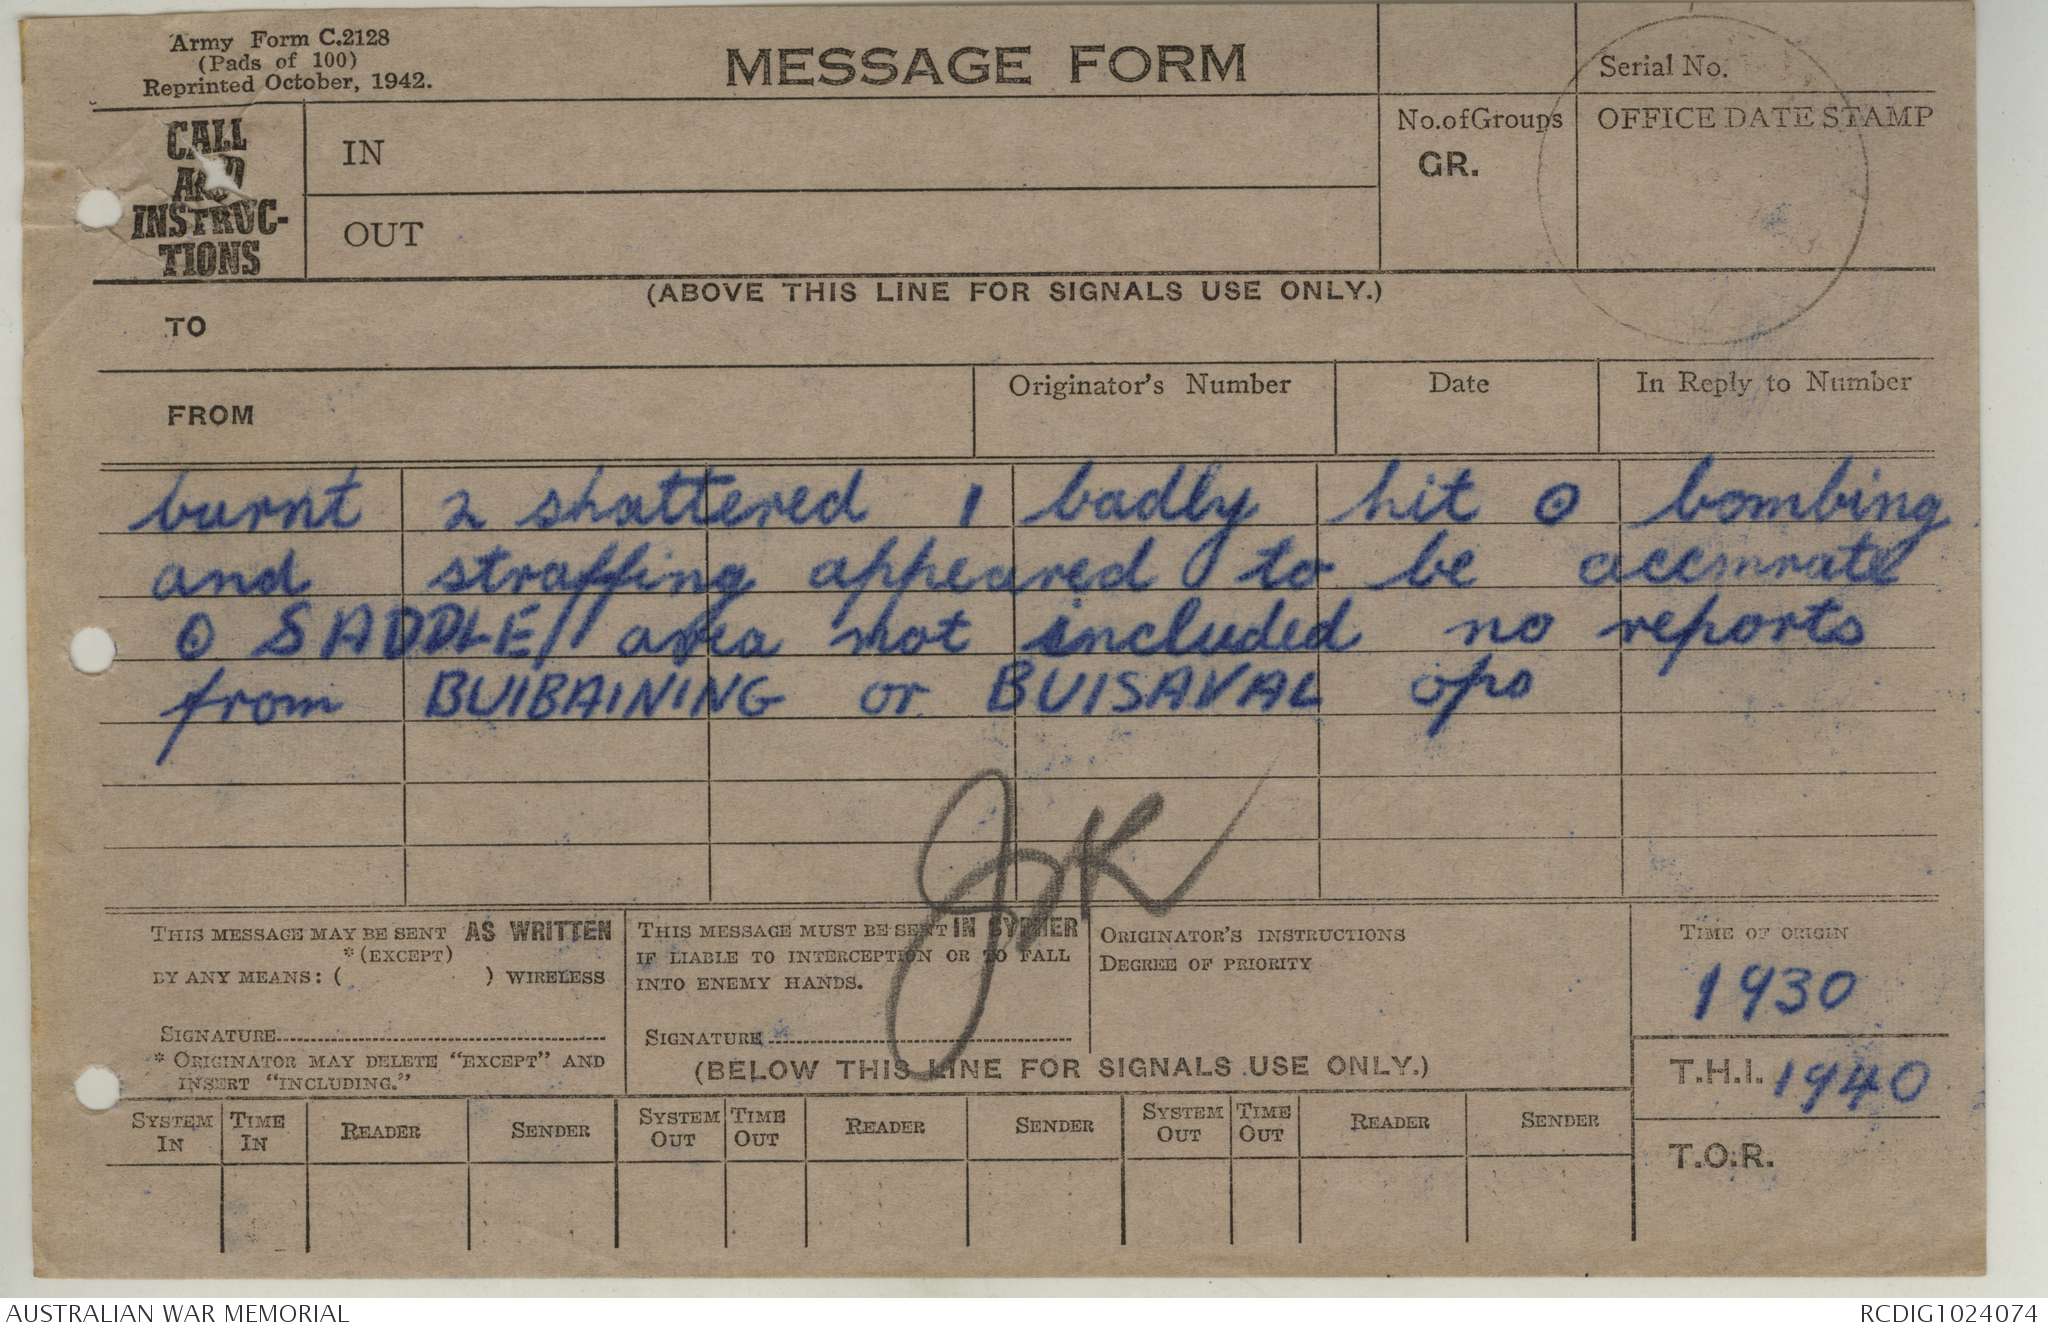 Army Form C.2128
(Pads of 100)
Reprinted October, 1942.
MESSAGE FORM
Serial No.
CALL
AND
INSTRUC-
TIONS
IN
OUT
No. of Groups
GR.
OFFICE DATE STAMP
(ABOVE THIS LINE FOR SIGNALS USE ONLY.)
TO
FROM
Originator's Number
Date
In Reply to Number
burnt 2 shattered 1 badly hit ⊙ bombing
and straffing appeared to be accmrate
⊙ SADDLE area not included no reports
from BUIBAINING or BUISAVAL ops
THIS MESSAGE MAY BE SENT AS WRITTEN
* (EXCEPT)
BY ANY MEANS: ( ) WIRELESS
SIGNATURE
* ORIGINATOR MAY DELETE "EXCEPT" AND
INSERT "INCLUDING."
THIS MESSAGE MUST BE SENT IN CYPHER
IF LIABLE TO INTERCEPTION OR TO FALL
INTO ENEMY HANDS.
SIGNATURE
ORIGINATOR'S INSTRUCTIONS
DEGREE OF PRIORITY
TIME OF ORIGIN
1930
(BELOW THIS LINE FOR SIGNALS USE ONLY.)
T.H.I. 1940
T.O.R.
SYSTEM IN
TIME IN
READER
SENDER
SYSTEM OUT
TIME OUT
READER
SENDER
SYSTEM OUT
TIME OUT
READER
SENDER
AUSTRALIAN WAR MEMORIAL
RCDIG1024074